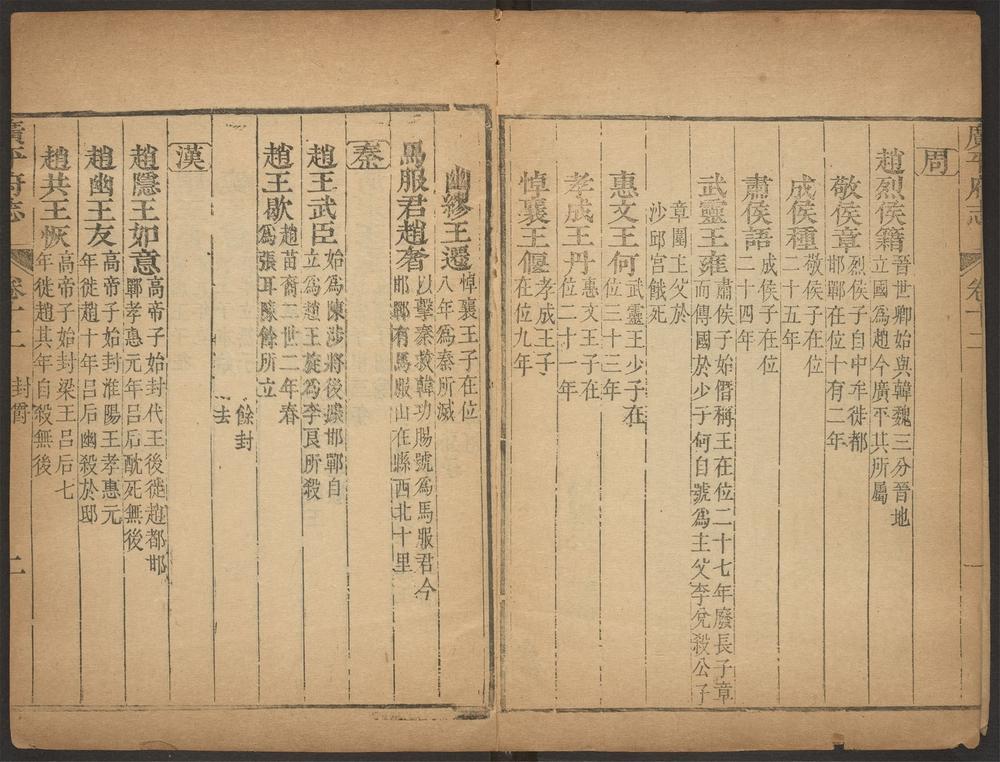 廣平府志
卷十二
一
周
趙烈侯籍晉世卿始與韓魏三分晉地立國為趙今廣平其所屬
敬侯章烈侯子自中牟徙都邯鄲在位十有二年
成侯種敬侯子在位二十五年
肅侯語成侯子在位二十四年
武靈王雍肅侯子始僭稱王在位二十七年廢長子章而傳國於少子何自號為主父李兌殺公子
章圍主父於沙邱宮餓死
惠文王何武靈王少子在位三十三年
孝成王丹惠文王子在位二十一年
悼襄王偃孝成王子在位九年
幽繆王遷悼襄王子在位八年為秦所滅
馬服君趙奢以擊秦救韓功賜號為馬服君今邯鄲有馬服山在縣西北十里
秦
趙王武臣始為陳涉將後據邯鄲自立為趙王旋為李良所殺
趙王歇趙苗裔三世二年春為張耳陳餘所立
餘封
去
漢
趙隱王如意高帝子始封代王後徙趙都邯鄲孝惠元年呂后酖死無後
趙幽王友高帝子始封淮陽王孝惠元年徙趙十年呂后幽殺於邸
趙共王恢高帝子始封梁王呂后七年徙趙其年自殺無後
廣平府志
卷十二
封爵
二